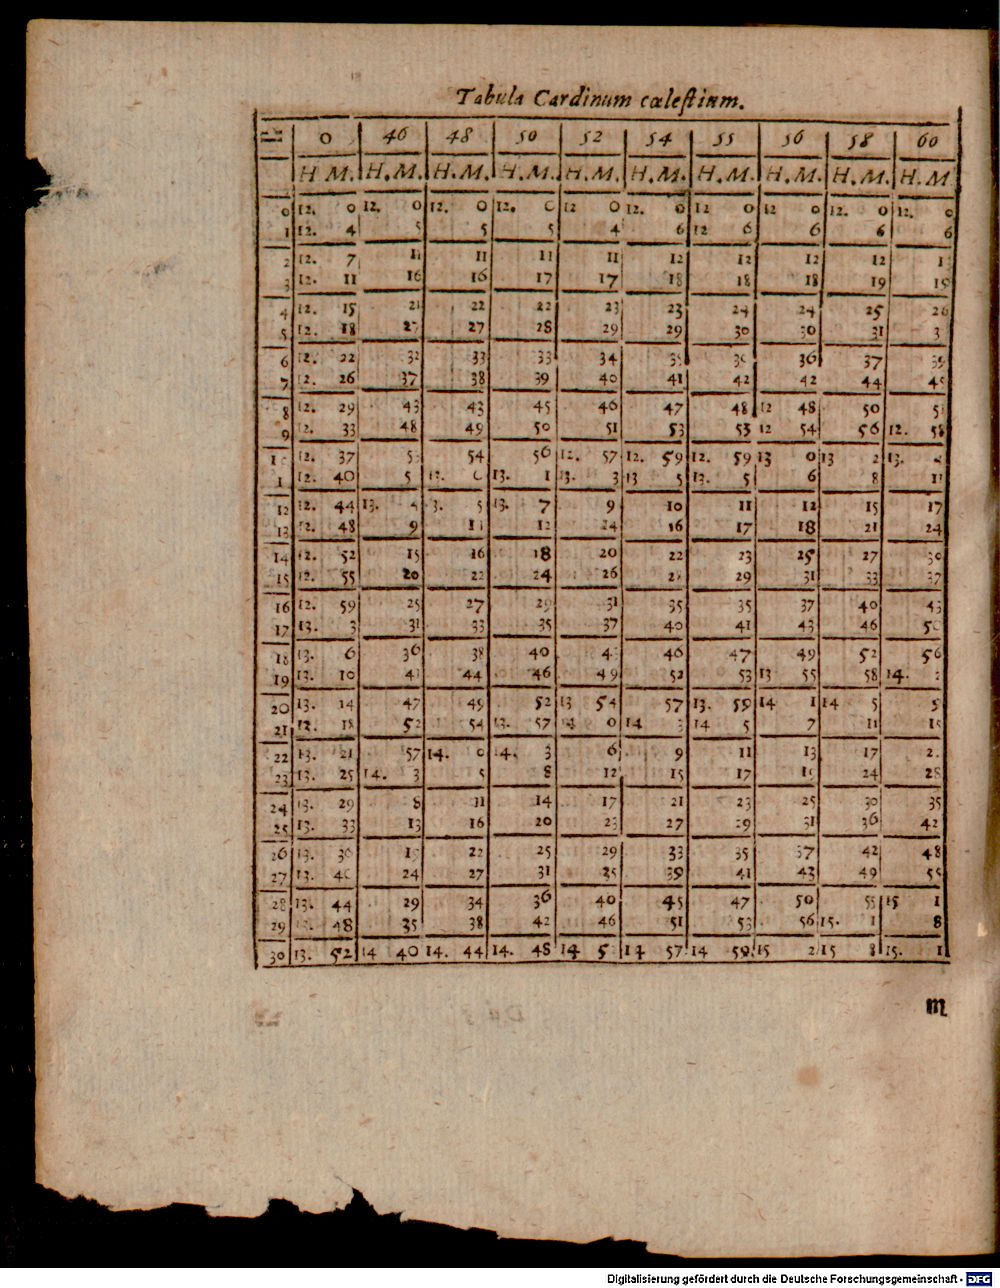 Tabula Cardinum cœlestium.
♎ 0 46 48 50 52 54 55 56 58 60
H M. H. M. H. M. H. M. H. M. H. M. H. M. H. M. H. M. H. M
0 12. 0 12. 0 12. 0 12. 0 12 0 12. 0 12 0 12 0 12. 0 12. 0
1 12. 4 5 5 5 4 6 12 6 6 6 6
2 12. 7 11 11 11 11 12 12 12 12
3 12. 11 16 16 17 17 18 18 18 19 19
4 12. 15 21 22 22 23 23 24 24 25 26
5 12. 18 27 27 28 29 29 30 30 31 3
6 12. 22 32 33 33 34 35 36 36 37 39
7 12. 26 37 38 39 40 41 42 42 44 45
8 12. 29 43 43 45 46 47 48 12 48 50 5
9 12. 33 48 49 50 51 53 53 12 54 56 12. 58
10 12. 37 53 54 56 12. 57 12. 59 12. 59 13 0 13 2 13.
1 12. 40 5 13. 13. 1 13. 3 13 5 13. 5 6 8 11
12 12. 44 13. 4 3. 5 13. 7 9 10 11 12 15 17
13 12. 48 9 11 12 14 16 17 18 21 24
14 12. 52 15 16 18 20 22 23 25 27 30
15 12. 55 20 22 24 26 2 29 31 33 37
16 12. 59 25 27 29 31 35 35 37 40 43
17 13. 3 31 33 35 37 40 41 43 46 50
18 13. 6 36 38 40 43 46 47 49 52 56
19 13. 10 41 44 46 49 52 53 13 55 58 14.
20 13. 14 47 49 52 13 54 57 13. 59 14 1 14 5 9
21 12. 18 52 54 13. 57 14 0 14 3 14 5 7 11 15
22 13. 21 57 14. 0 14. 3 6 9 11 13 17 2
23 13. 25 14. 3 5 8 12 15 17 19 24 28
24 13. 29 8 11 14 17 21 23 25 30 35
25 13. 33 13 16 20 23 27 29 31 36 42
26 13. 36 19 22 25 29 33 35 37 42 48
27 13. 40 24 27 31 35 39 41 43 49 55
28 13. 44 29 34 36 40 45 47 50 55 15 1
29 13. 48 35 38 42 46 51 53 56 15. 1 8
30 13. 52 14 40 14. 44 14. 48 14 5 14 57 14 59 15 2 15 8 15. 1
m
Digitalisierung gefördert durch die Deutsche Forschungsgemeinschaft - DFG